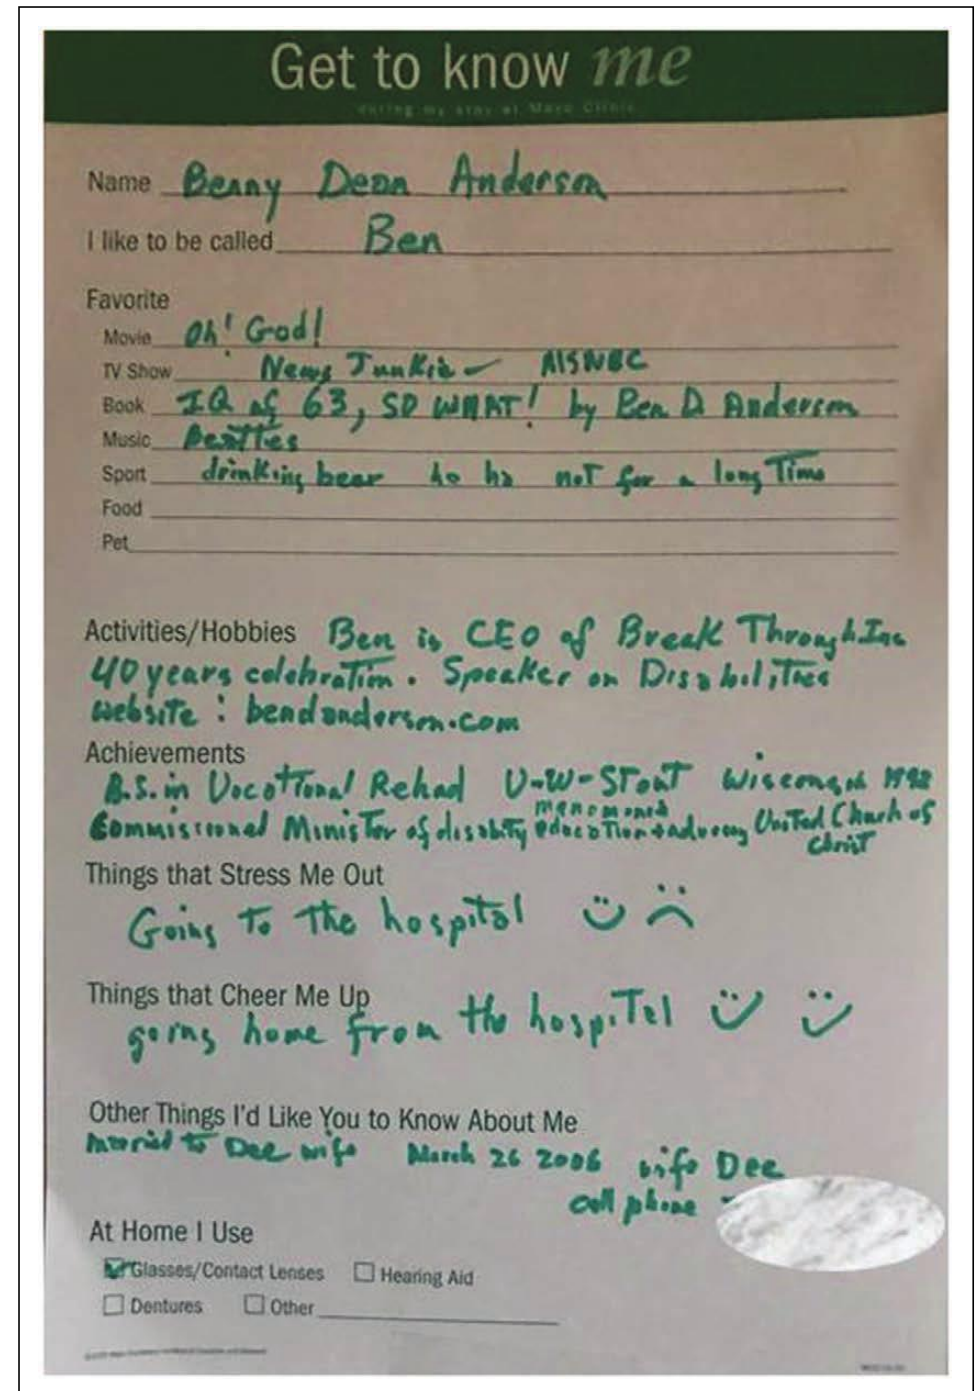 Get to know me
during my stay at Mayo Clinic
Name Benny Dean Anderson
I like to be called Ben
Favorite
Movie Oh! God!
TV Show News Junkie - MSNBC
Book IQ of 63, SO WHAT! by Ben D Anderson
Music Beatles
Sport drinking beer ho ho not for a long Time
Food
Pet
Activities/Hobbies Ben is CEO of Break Through Inc
40 years celebration. Speaker on Disabilities
website: bendanderson.com
Achievements
B.S. in Vocational Rehad U-W-Stout Wisconsin
menomonie
Commissional Minister of disability education + advocacy United Church of
Christ
Things that Stress Me Out
Going To The hospital
Things that Cheer Me Up
going home from the hospiTal
Other Things I'd Like You to Know About Me
married to Dee wife March 26 2006 wife Dee
cell phone
At Home I Use
Glasses/Contact Lenses Hearing Aid
Dentures Other